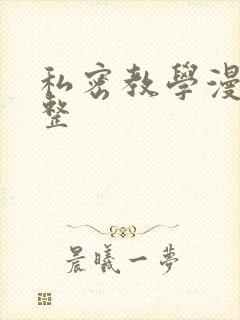 私密教學漫
整
晨曦一夢